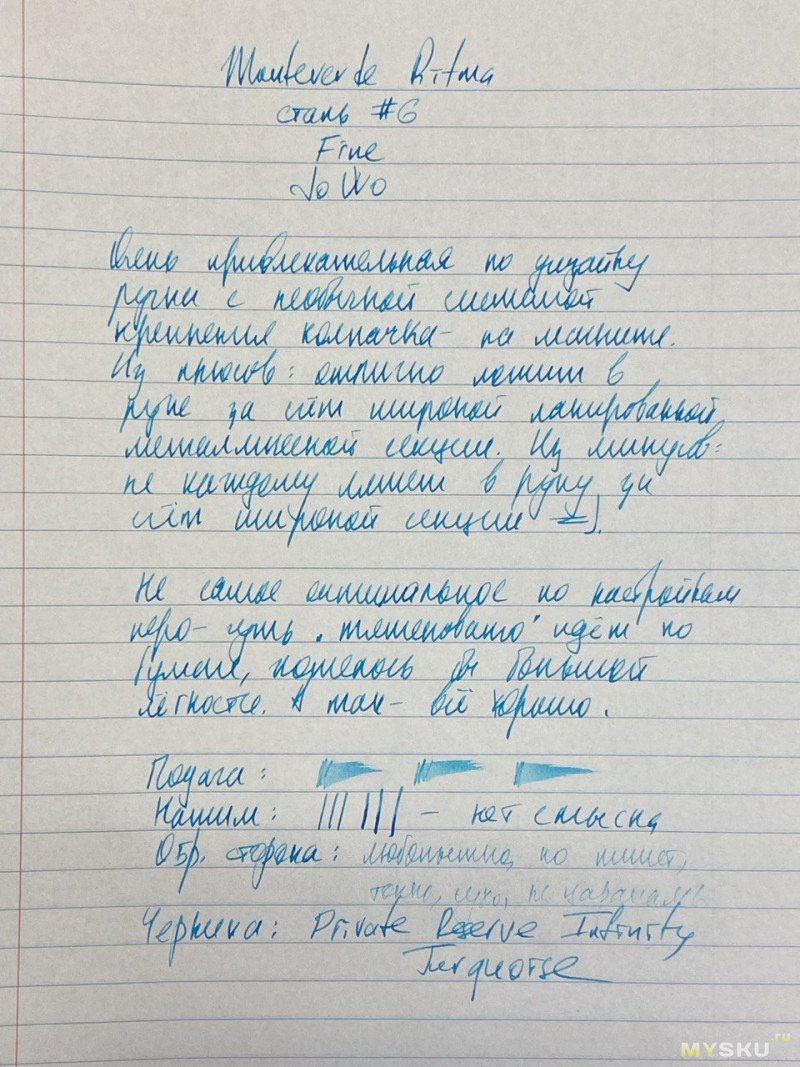 Monteverde Ritma
сталь #6
Fine
JoWo
Очень привлекательная по дизайну
ручка с необычной системой
крепления колпачка - на магните.
Из плюсов: отлично лежит в
руке за счёт широкой лакированной
металлической секции. Из минусов:
не каждому ляжет в руку за
счёт широкой секции =).
Не самое оптимальное по настройкам
перо - чуть "тяжеловато" идёт по
бумаге, хотелось бы большей
лёгкости. А так - всё хорошо.
Подача:
Нажим: - нет смысла
Обр. сторона: любопытно, но пишет,
тонко, сухо, не царапаясь
Чернила: Private Reserve Infinity
Turquoise
MYSKU.ru